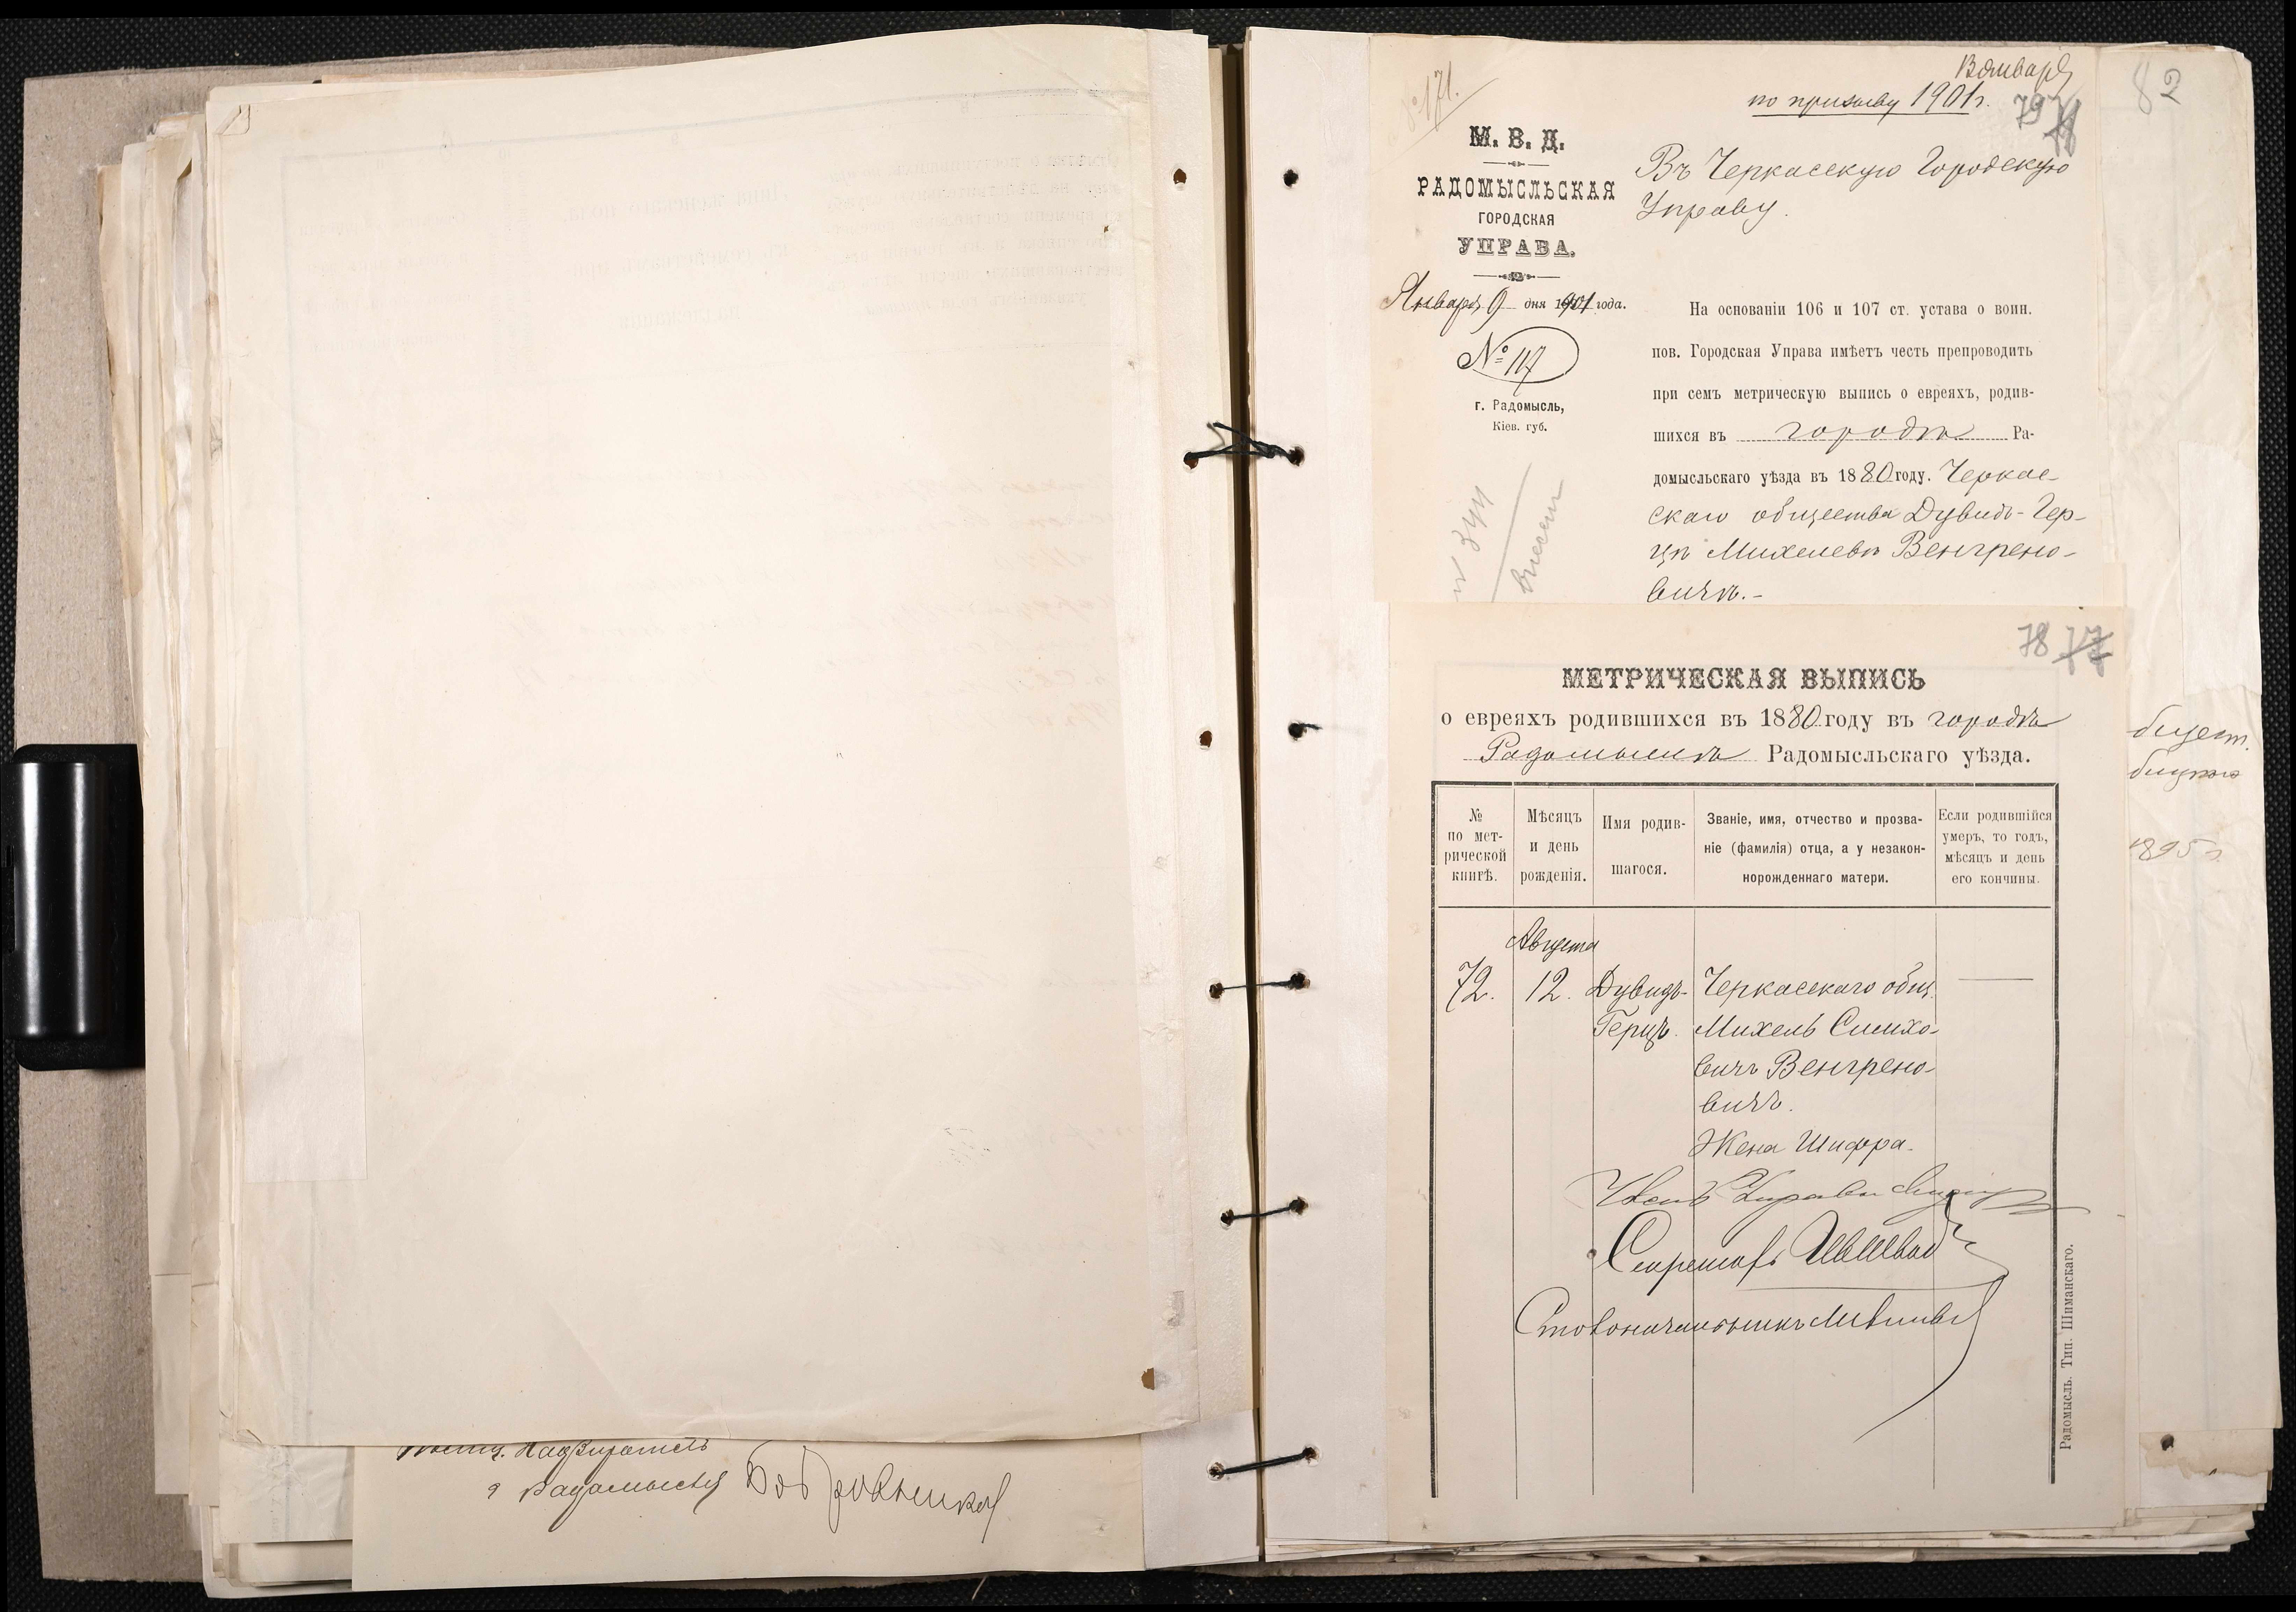 Полиц. Надзиратель
г Радомысля Бобровницкій
№ 171.
13 января
по призыву 1901 г.
79
82
М. В. Д.
РАДОМЫСЛЬСКАЯ
ГОРОДСКАЯ
УПРАВА.
Января 9 дня 1901 года.
№ 117
г. Радомысль,
Кіев. губ.
Въ Черкасскую Городскую
Управу.
На основаніи 106 и 107 ст. устава о воин.
пов. Городская Управа имѣетъ честь препроводить
при семъ метрическую выпись о евреяхъ, родив-
шихся въ городѣ Ра-
домысльскаго уѣзда въ 1880 году. Черкас-
скаго общества Дувидъ-Гер-
цѣ Михелевѣ Венгрено-
вичѣ.-
внесен
78 77
МЕТРИЧЕСКАЯ ВЫПИСЬ
о евреяхъ родившихся въ 1880 году въ городѣ
Радомыслѣ Радомысльскаго уѣзда.
№
по мет-
рической
книгѣ.
Мѣсяцъ
и день
рожденія.
Имя родив-
шагося.
Званіе, имя, отчество и прозва-
ніе (фамилія) отца, а у незакон-
норожденнаго матери.
Если родившійся
умеръ, то годъ,
мѣсяцъ и день
его кончины.
Августа
72. 12. Дувидъ- Черкасскаго общ.
Герцъ. Михель Симхо-
вичъ Венгрено-
вичъ.
Жена Шифра.
Членъ Управы
Секретарь
Столоначальникъ
Радомысль. Тип. Шиманскаго.
1895 г.